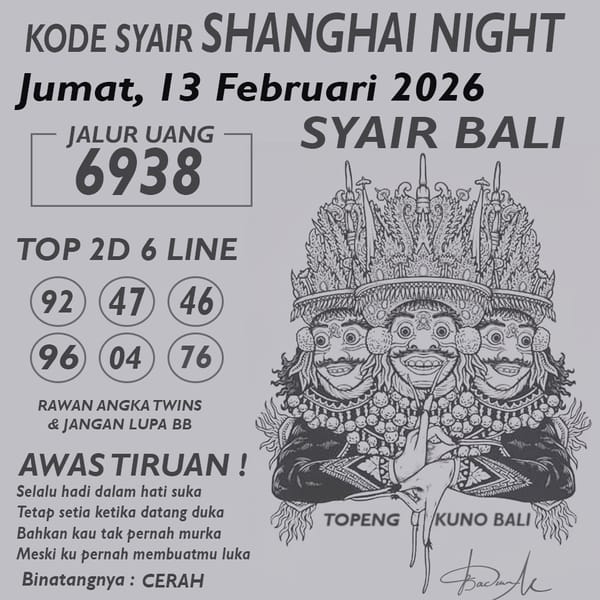 KODE SYAIR SHANGHAI NIGHT
Jumat, 13 Februari 2026
JALUR UANG
6938
SYAIR BALI
TOP 2D 6 LINE
92 47 46
96 04 76
RAWAN ANGKA TWINS
& JANGAN LUPA BB
AWAS TIRUAN !
Selalu hadi dalam hati suka
Tetap setia ketika datang duka
Bahkan kau tak pernah murka
Meski ku pernah membuatmu luka
Binatangnya : CERAH
TOPENG KUNO BALI